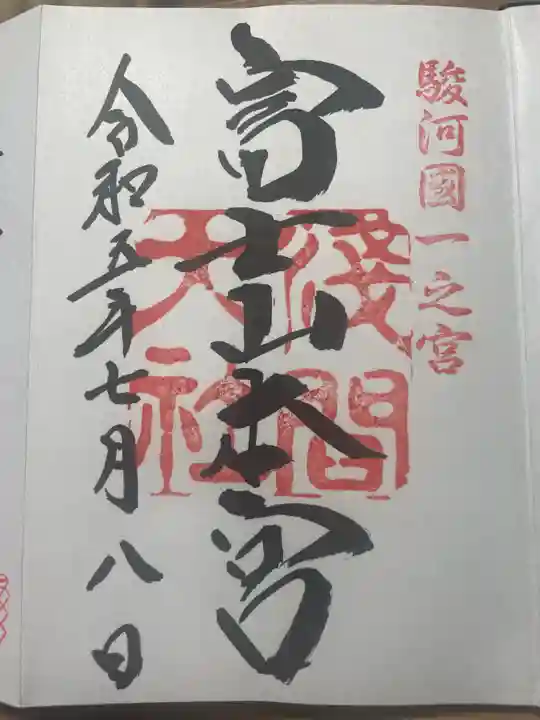 駿河國一之宮
富士山本宮
淺間
大社
令和五年七月八日